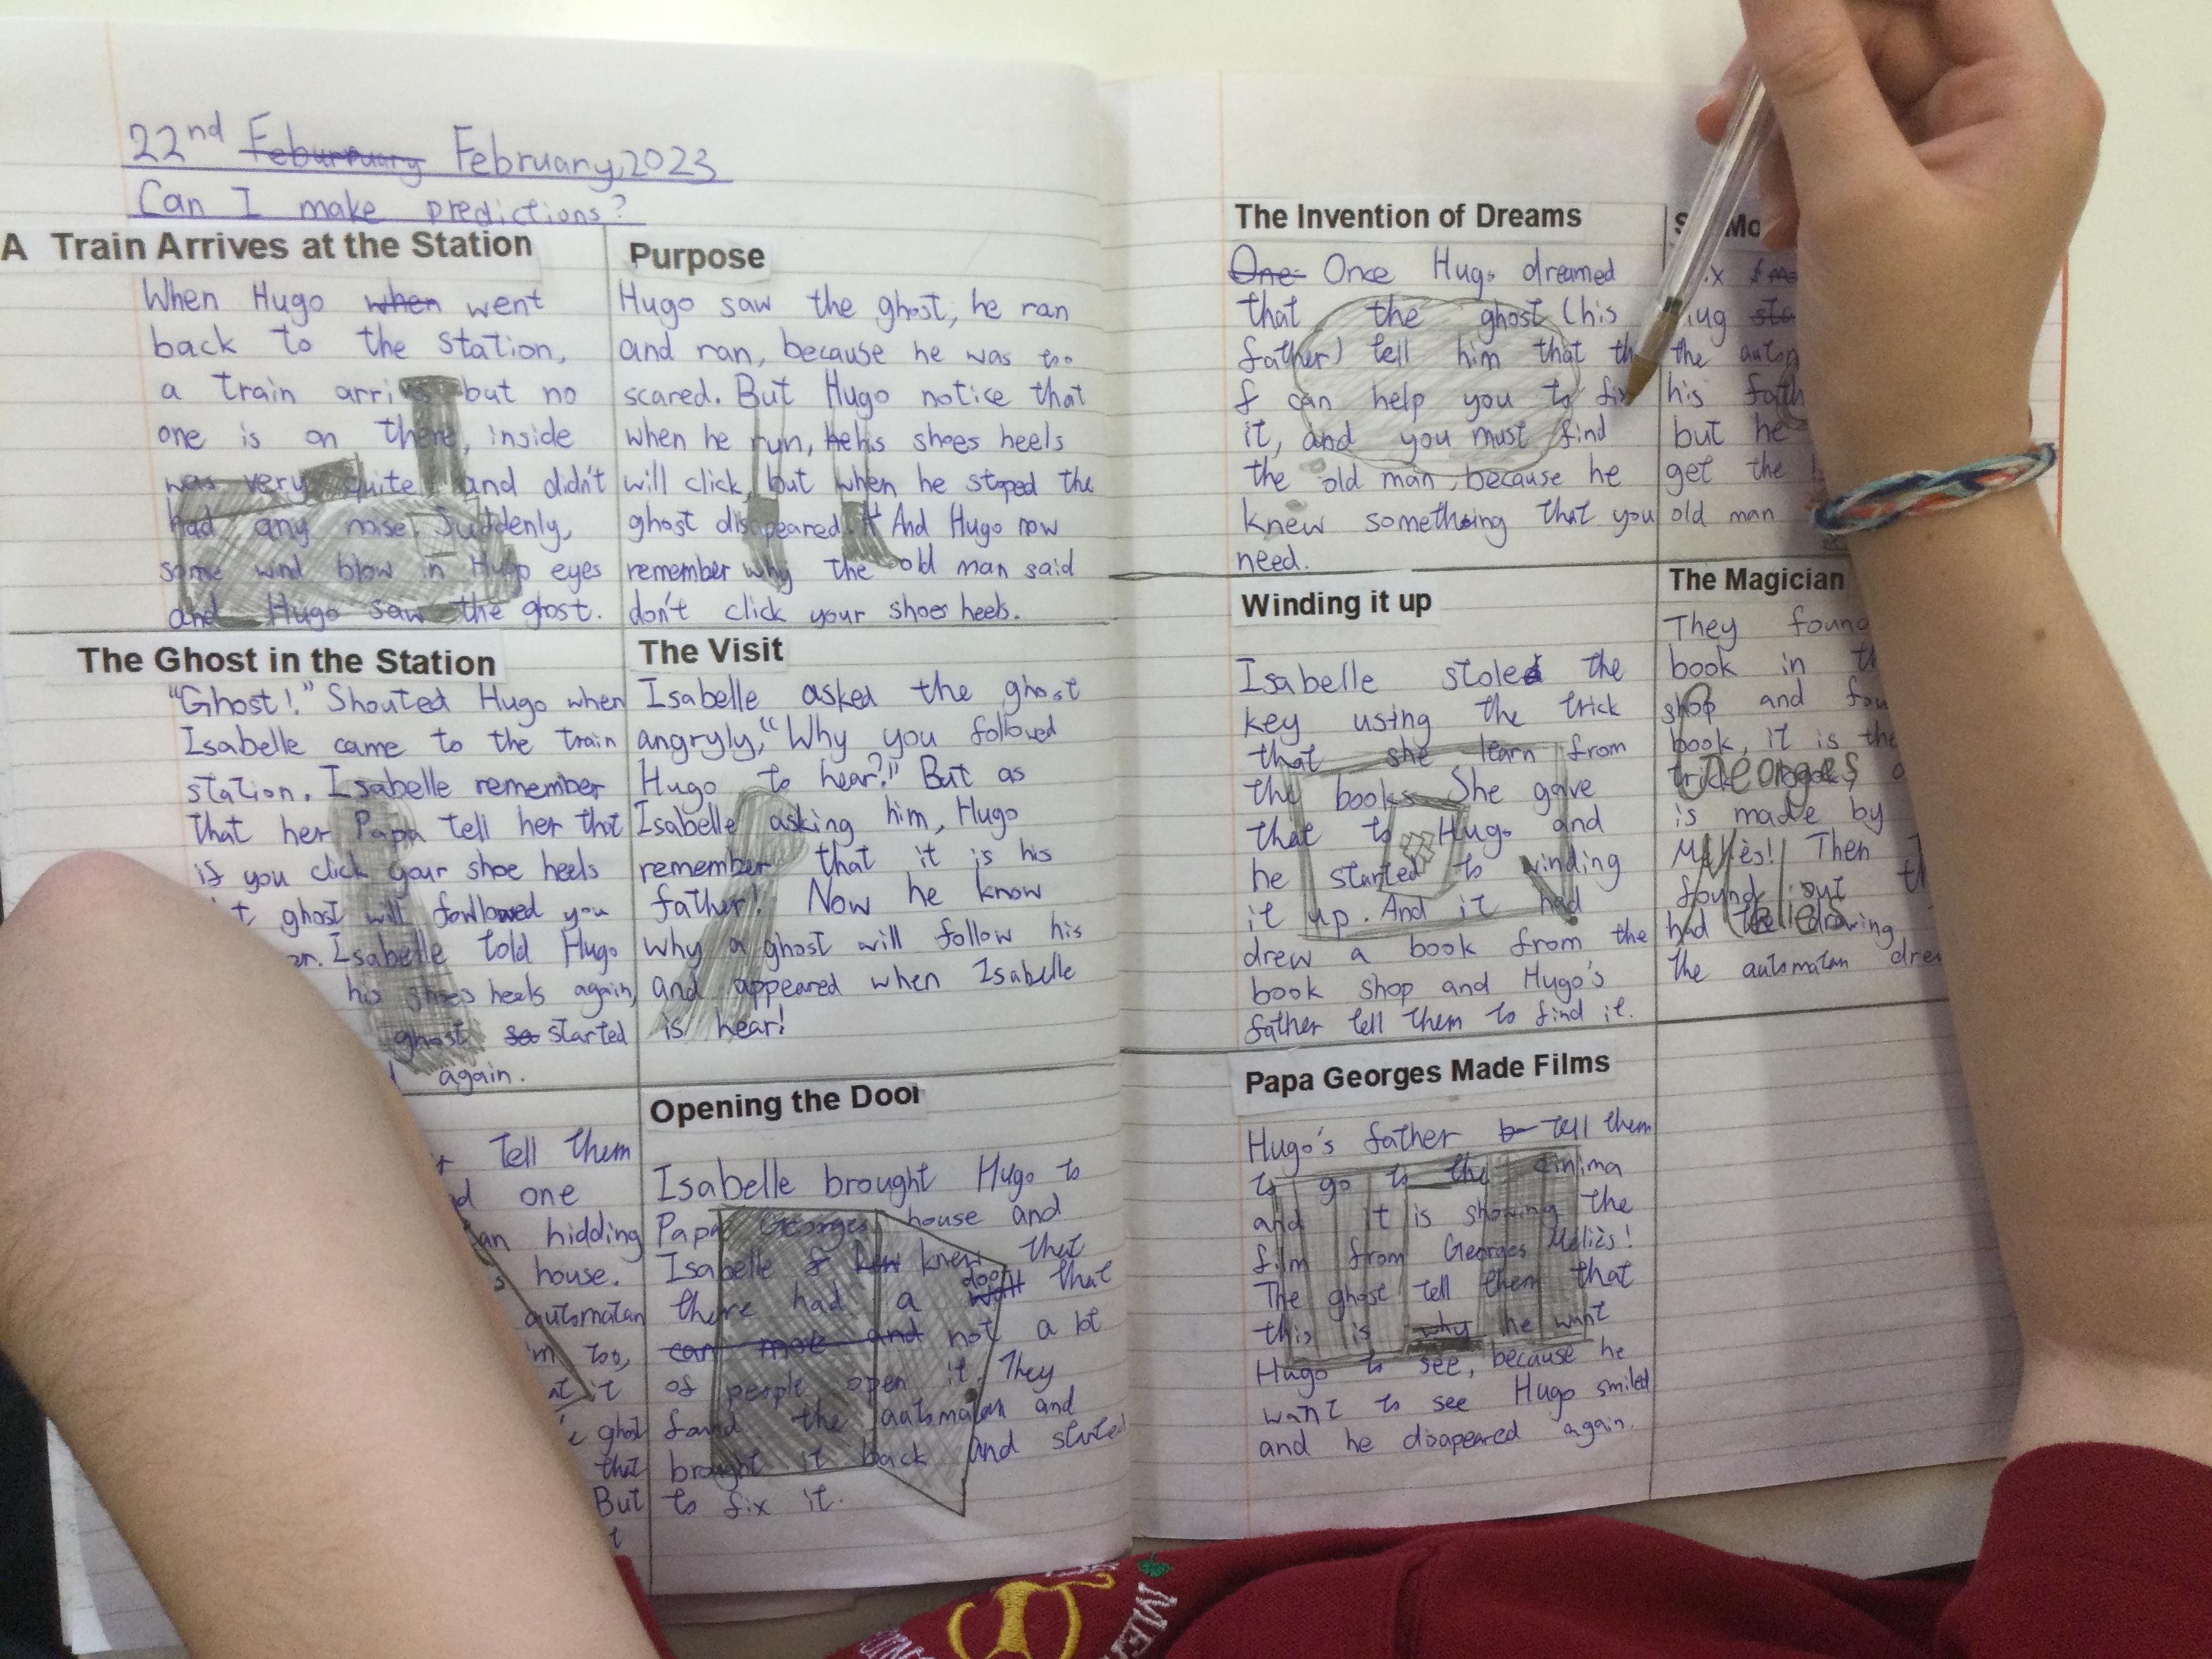 22nd Feburruary February,2023
Can I make predictions?
A Train Arrives at the Station
When Hugo when went
back to the station,
a train arrive but no
one is on there, inside
was very quite and didn't
had any noise. Suddenly,
some wind blow in Hugo eyes
and Hugo saw the ghost.
Purpose
Hugo saw the ghost, he ran
and ran, because he was too
scared. But Hugo notice that
when he run, he his shoes heels
will click, but when he stoped the
ghost dispeared. And Hugo now
remember why the old man said
don't click your shoes heels.
The Ghost in the Station
"Ghost!" Shouted Hugo when
Isabelle came to the train
station. Isabelle remember
that her Papa tell her that
if you click your shoe heels
ghost will followed you
Isabelle told Hugo
his shoes heels again,
ghost so started
again.
The Visit
Isabelle asked the ghost
angryly, "Why you followed
Hugo to hear?!" But as
Isabelle asking him, Hugo
remember that it is his
father! Now he know
why a ghost will follow his
and appeared when Isabelle
is hear!
tell them
one
hidding
house.
automatan
too,
it
ghost
that
But
Opening the Door
Isabelle brought Hugo to
Papa Georges house and
Isabelle knew that
there had a door that
can move and not a lot
of people open it. They
found the automatan and
brought it back and started
to fix it.
The Invention of Dreams
One Once Hugo dreamed
that the ghost (his
father) tell him that
I can help you to fix
it, and you must find
the old man, because he
knew something that you
need.
the
his
but he
get the
old man
Winding it up
Isabelle stoled the
key using the trick
that she learn from
the books. She gave
that to Hugo and
he started to winding
it up. And it had
drew a book from the
book shop and Hugo's
father tell them to find it.
The Magician
They found
book in
shop and
book, it is the
trick book,
is made by
Méliès! Then
found out
had the drawing
the automatan
Georges
Melies
Papa Georges Made Films
Hugo's father tell them
to go to the cinima
and it is showing the
film from Georges Méliès!
The ghost tell them that
this is why he want
Hugo to see, because he
want to see Hugo smiled
and he disapeared again.